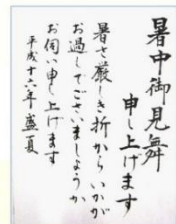 暑中御見舞
申し上げます
暑さ厳しき折から いかが
お過しでございましょうか
お伺い申し上げます
平成十六年 盛夏